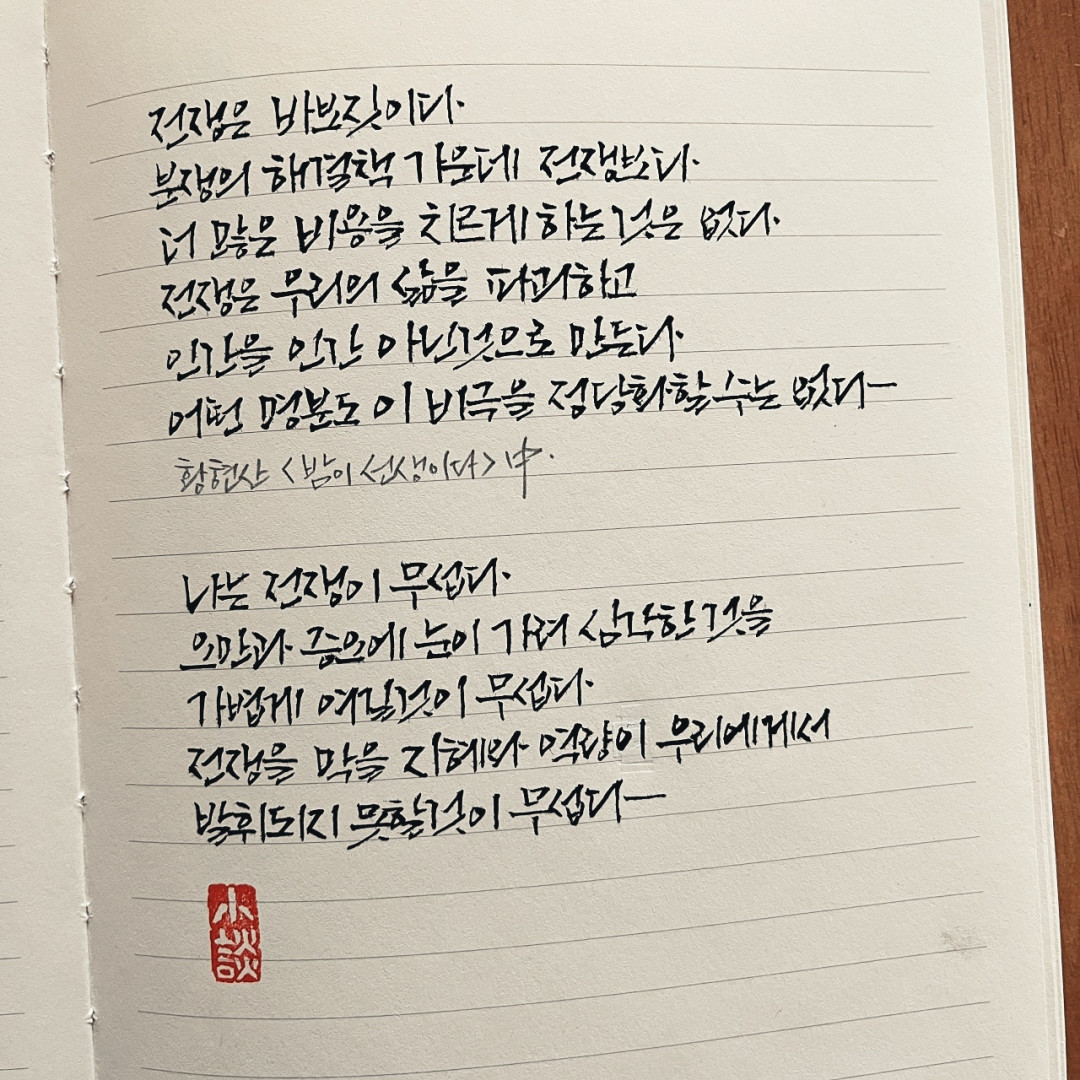 전쟁은 바보짓이다.
분쟁의 해결책 가운데 전쟁보다.
더 많은 비용을 치르게 하는것은 없다.
전쟁은 우리의 삶을 파괴하고
인간을 인간 아닌것으로 만든다.
어떤 명분도 이 비극을 정당화할수는 없다—
황현산 <밤이 선생이다> 中.
나는 전쟁이 무섭다.
오만과 증오에 눈이 가려 심각한것을
가볍게 여길것이 무섭다.
전쟁을 막을 지혜와 역량이 우리에게서
발휘되지 못할것이 무섭다—
小談